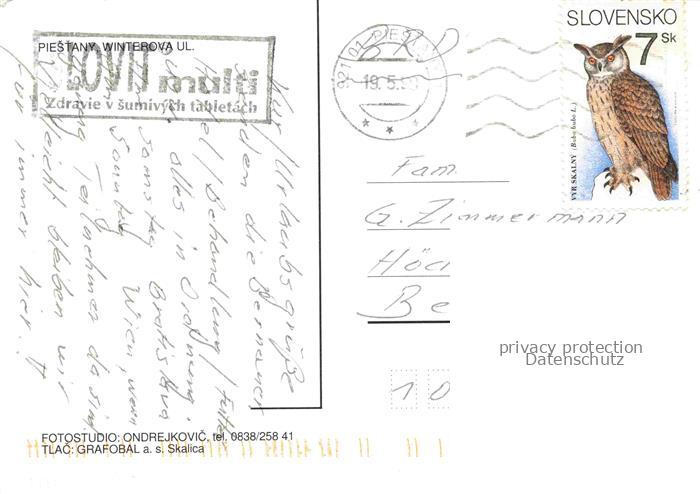 PIEŠŤANY, WINTEROVA UL.
LOVIT multi
Zdravie v šumivých tabletách
921 01 PIEŠŤ
19.5.
BRD
SLOVENSKO
7 Sk
VÝR SKALNÝ (Bubo bubo L.)
Kur/Urlaubsgrüße
senden die Bernauer
Hotel/Behandlung/Futter
alles in Ordnung.
Samstag Bratislava
Sonntag Wien, wenn
genug Teilnehmer da sind.
Vielleicht bleiben wir
für immer hier!!
Fam.
G. Zimmermann
Höc
Be
10
privacy protection
Datenschutz
FOTOSTUDIO: ONDREJKOVIČ, tel. 0838/258 41
TLAČ: GRAFOBAL a. s. Skalica